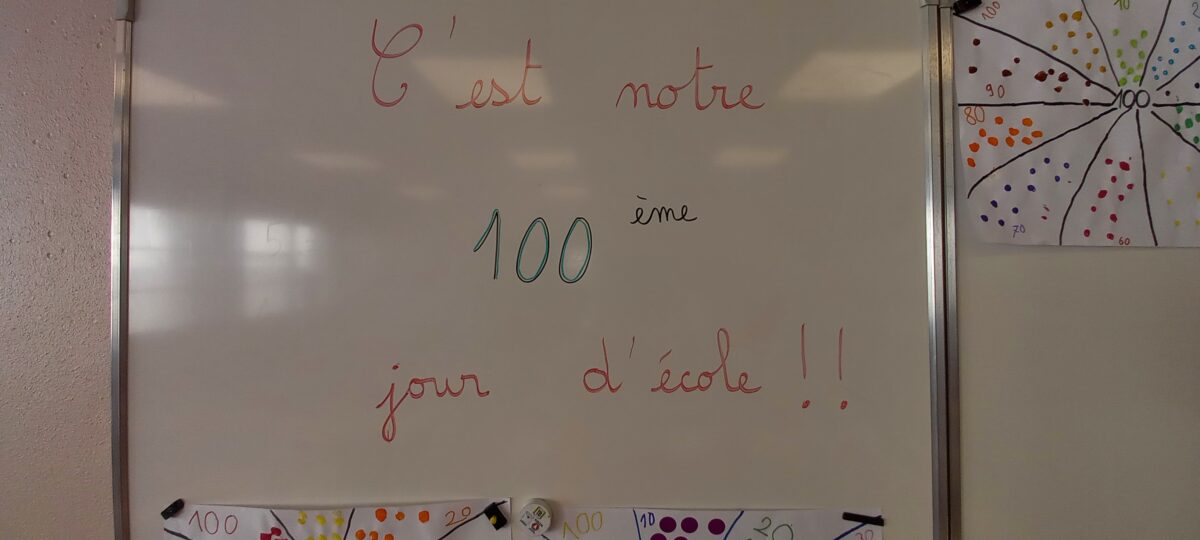 C'est notre
100 ème
jour d'école !!
100
10
100
90
80
70
60
100
20
100
10
20